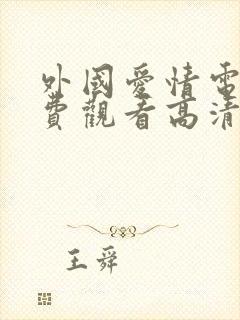 外國愛情電
費觀看高清
王舜